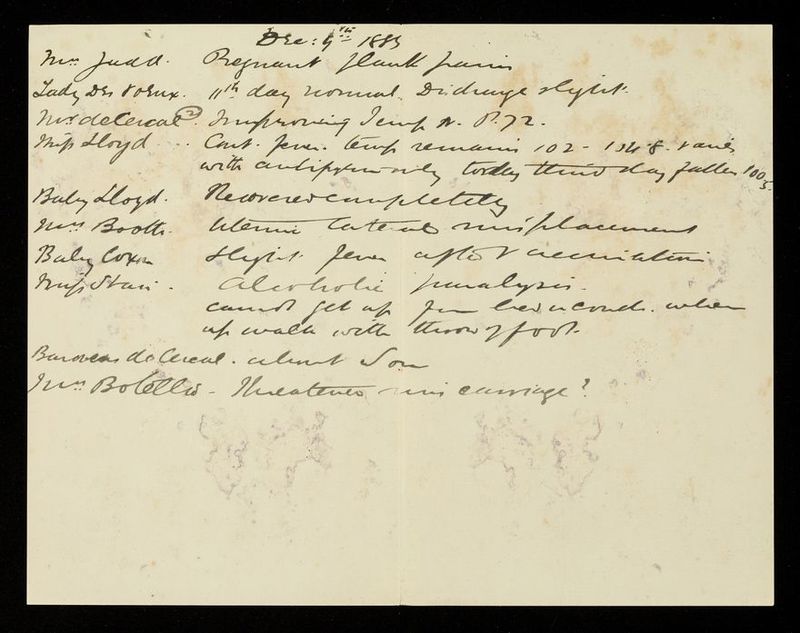 Dec: 9th 1889
Mrs Judd. Pregnant flank pains
Lady Des Voeux. 11th day normal. Discharge slight.
de Cereal (2). Improving Temp N. P. 72.
Miss Lloyd ... Cont. fever. temp remains 102 - 104.8. varies
with antipyrin only today third day fallen 100.5
Baby Lloyd. Recovered completely
Mrs Booth. Uterine lateral misplacement
Baby Coxon slight fever after vaccination
Miss . Alcoholic paralysis.
cannot get up from bed or couch. when
up walk with throw of foot.
Baroness de Cereal. about Son
Mrs Botelho - Threatened miscarriage?